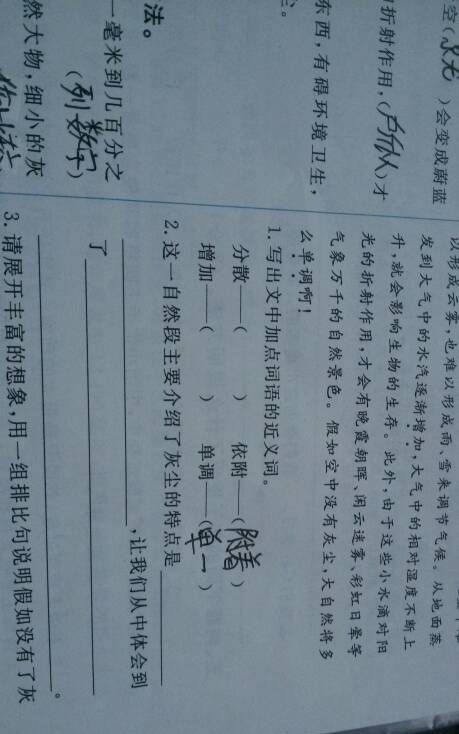 空(没光)会变成蔚蓝
折射作用，(所以)才
东西，有碍环境卫生，
法。
一毫米到几百分之
(列数字)
然大物，细小的灰
以形成云雾，也难以形成雨、雪来调节气候。从地面蒸
发到大气中的水汽逐渐增加，大气中的相对湿度不断上
升，就会影响生物的生存。此外，由于这些小水滴对阳
光的折射作用，才会有晚霞朝晖、闲云迷雾、彩虹日晕等
气象万千的自然景色。假如空中没有灰尘，大自然将多
么单调啊！
1. 写出文中加点词语的近义词。
分散——( ) 依附——(附着)
增加——( ) 单调——(单一)
2. 这一自然段主要介绍了灰尘的特点是
，让我们从中体会到
了
。
3. 请展开丰富的想象，用一组排比句说明假如没有了灰